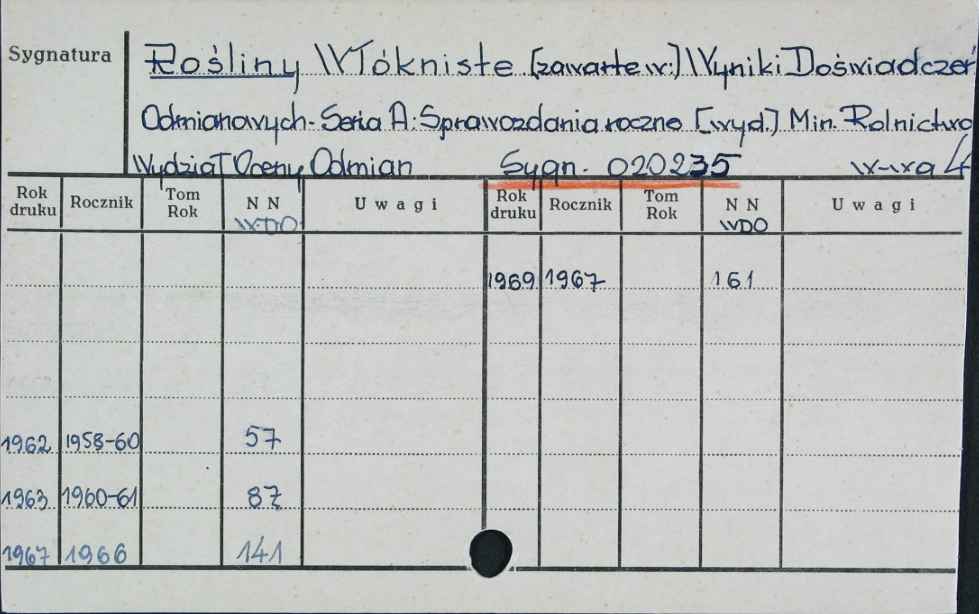 Sygnatura
Rośliny Włókniste [zawarte w:] Wyniki Doświadczeń
Odmianowych - Seria A: Sprawozdania roczne [wyd.] Min. Rolnictwa
Wydział Oceny Odmian Sygn. 020235 W-wa
Rok druku Rocznik Tom Rok NN Uwagi Rok druku Rocznik Tom Rok NN Uwagi
WDO WDO
1969 1967 161
1962 1958-60 57
1963 1960-61 87
1967 1966 141